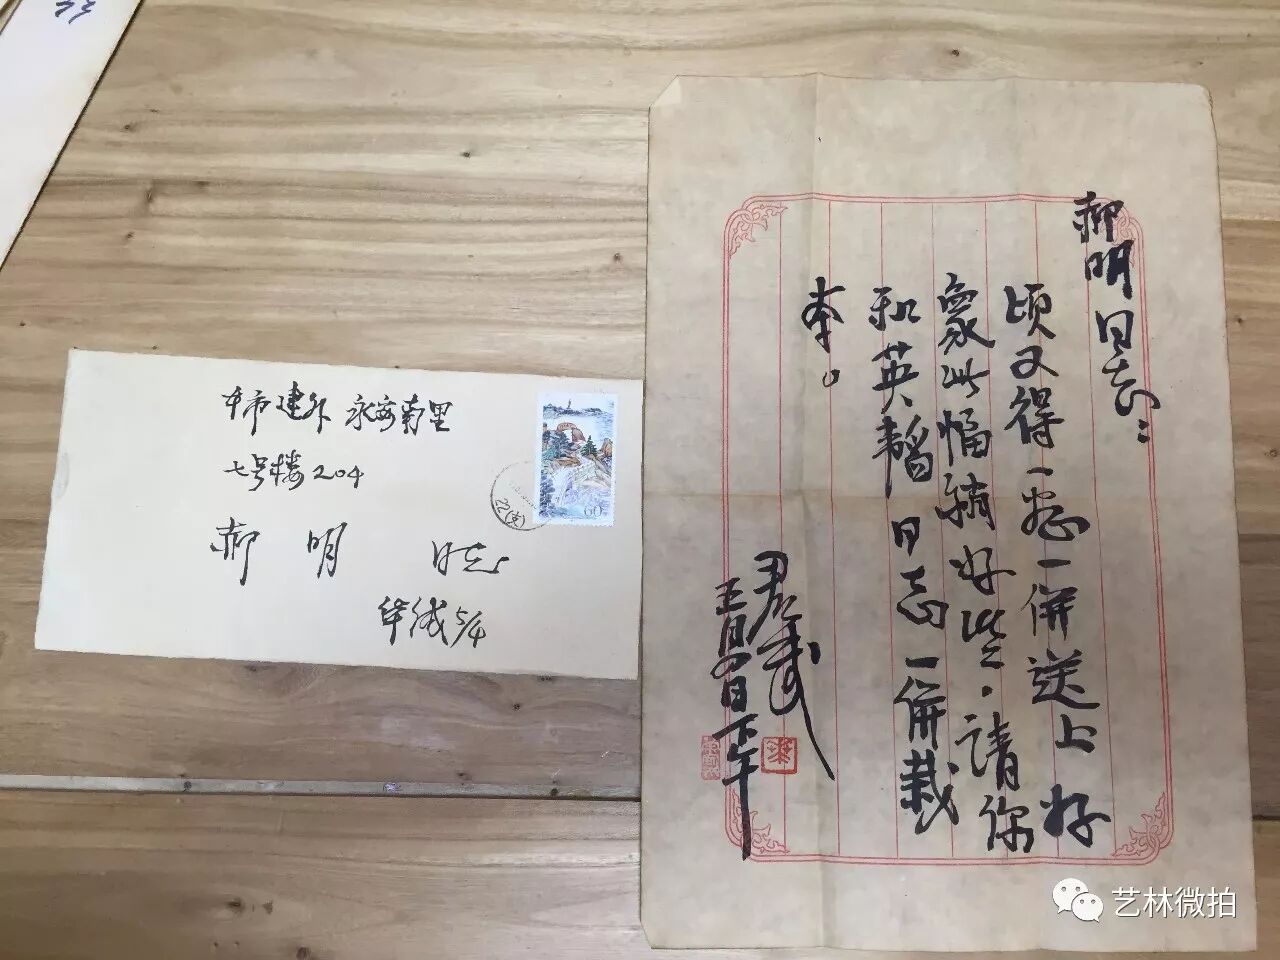 本市建外永安南里
七号楼204
郝明同志
60
郝明同志：
顷又得一纸一併送上好
象此幅稍好些。请你
和英韬同志一併裁
夺。
君武
三月四日下午
艺林微拍